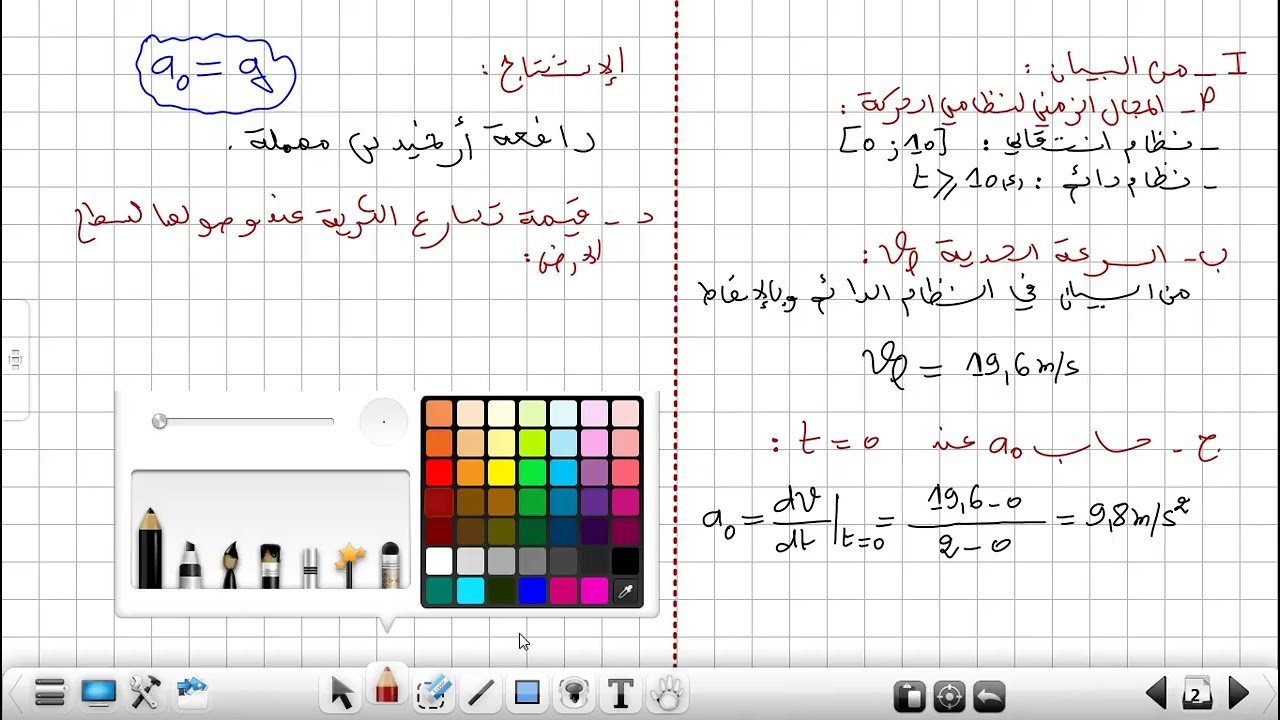 I - من البيان :
أ - المجال الزمني لنظامي الحركة :
- نظام انتقالي : [0 ; 10]
- نظام دائم : t ⩾ 10s
ب - السرعة الحدية vℓ :
من البيان في النظام الدائم وبالإسقاط
vℓ = 19,6 m/s
ج - حساب a₀ عند t = 0 :
a₀ = dv/dt |t=0 = (19,6 - 0)/(2 - 0) = 9,8 m/s²
الإستنتاج :
a₀ = g
دافعة أرخميدس مهملة .
د - قيمة تسارع الكرية عند وصولها لسطح
الأرض :
T
2